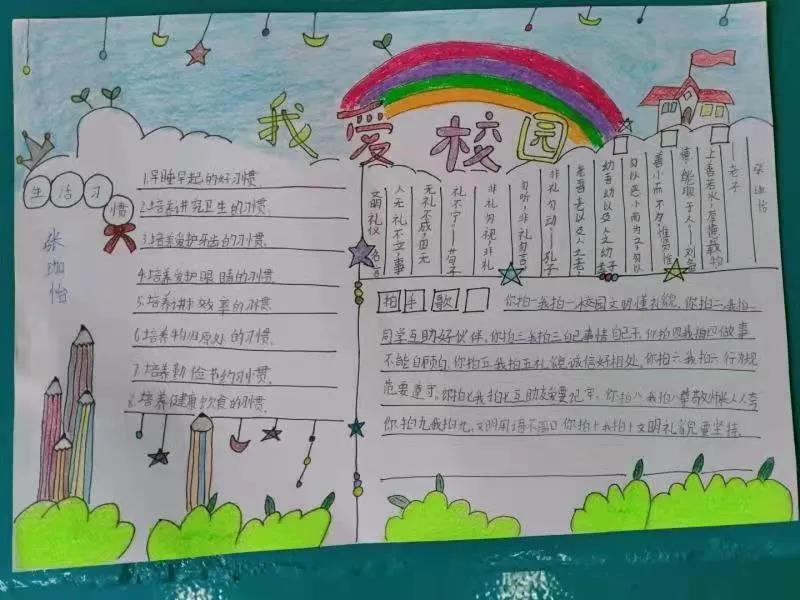 我爱校园
生活习惯
张珈怡
1.早睡早起的好习惯.
2.培养讲究卫生的习惯.
3.培养爱护牙齿的习惯.
4.培养爱护眼睛的习惯.
5.培养讲求效率的习惯.
6.培养物归原处的习惯.
7.培养勤俭节约习惯.
8.培养健康饮食的习惯.
文明礼仪 名言
人无礼不立,事
无礼不成,国无
礼不宁——荀子
非礼勿视,非礼
勿听,非礼勿言
非礼勿动——孔子
老吾老以及人之老,
幼吾幼以及人之幼 孟子
勿以恶小而为之,勿以
善小而不为,惟贤惟
德,能服于人——刘备
上善若水,厚德载物.
——老子
张珈怡
拍手歌 你拍一我拍一,校园文明懂礼貌,你拍二,我拍二
同学互助好伙伴,你拍三我拍三自己事情自己干,你拍四我拍四做事
不能自顾自,你拍五我拍五礼貌诚信好相处,你拍六我拍六行为规
范要遵守,你拍七我拍七互助友爱要记牢,你拍八我拍八尊敬师长人人夸
你拍九我拍九,文明用语不离口你拍十我拍十文明礼貌要坚持.